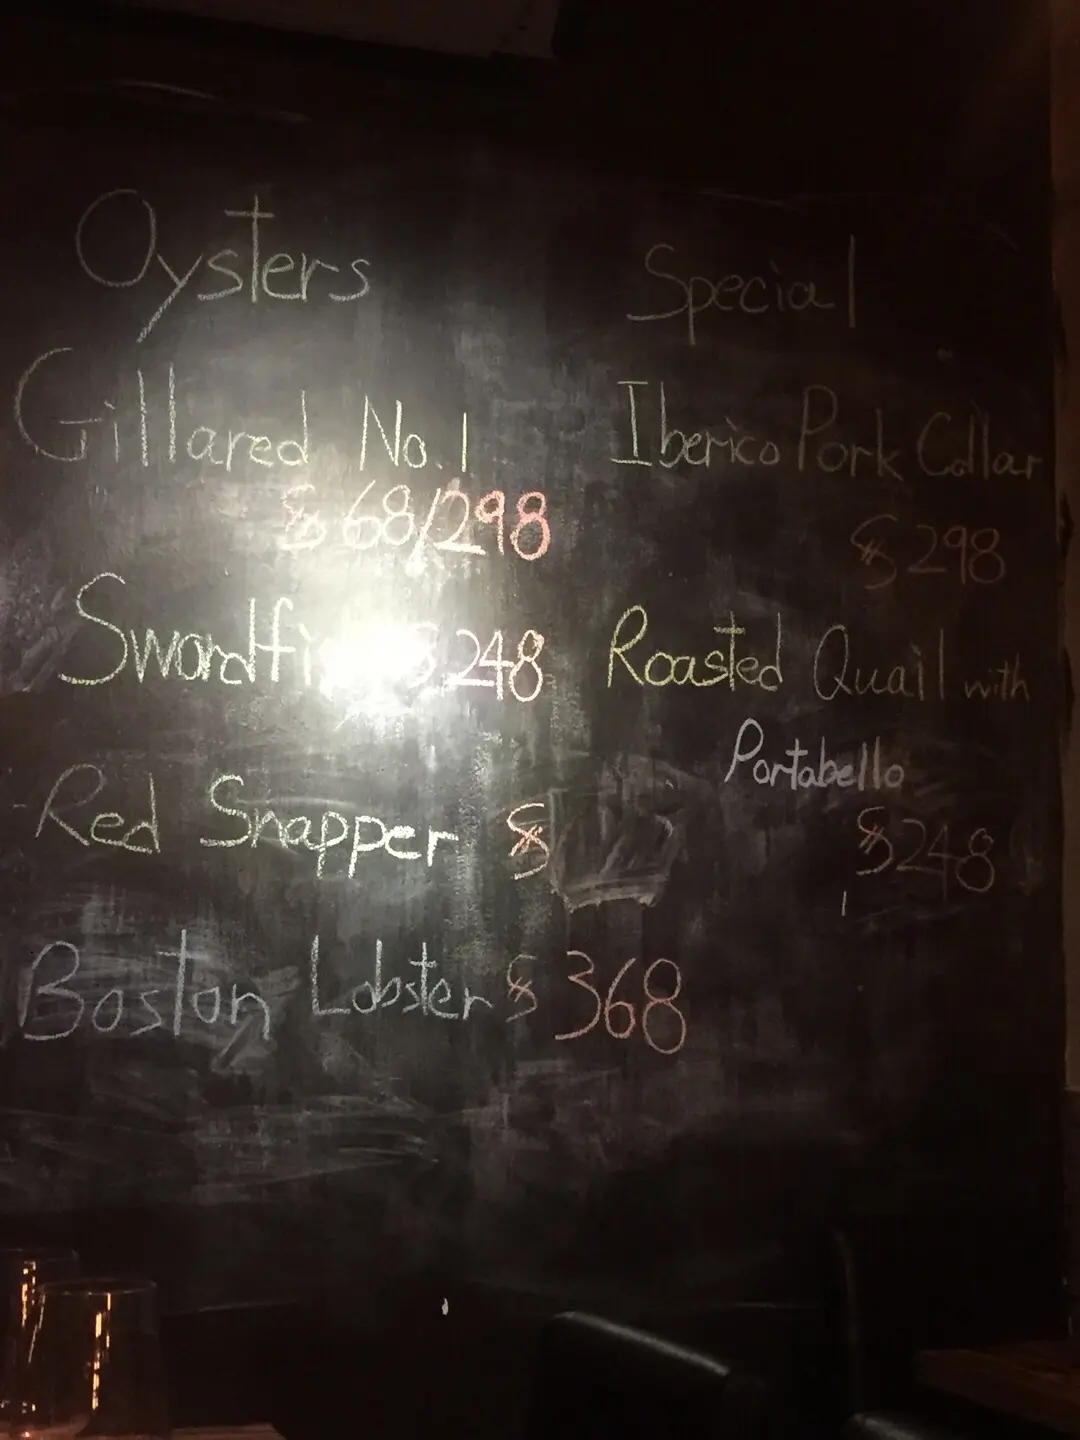 Oysters
Gillared No.1
$ 68/298
$ 248
Red Snapper $
Boston Lobster $ 368
Special
Iberico Pork Collar
$ 298
Roasted Quail with
Portabello
$ 248